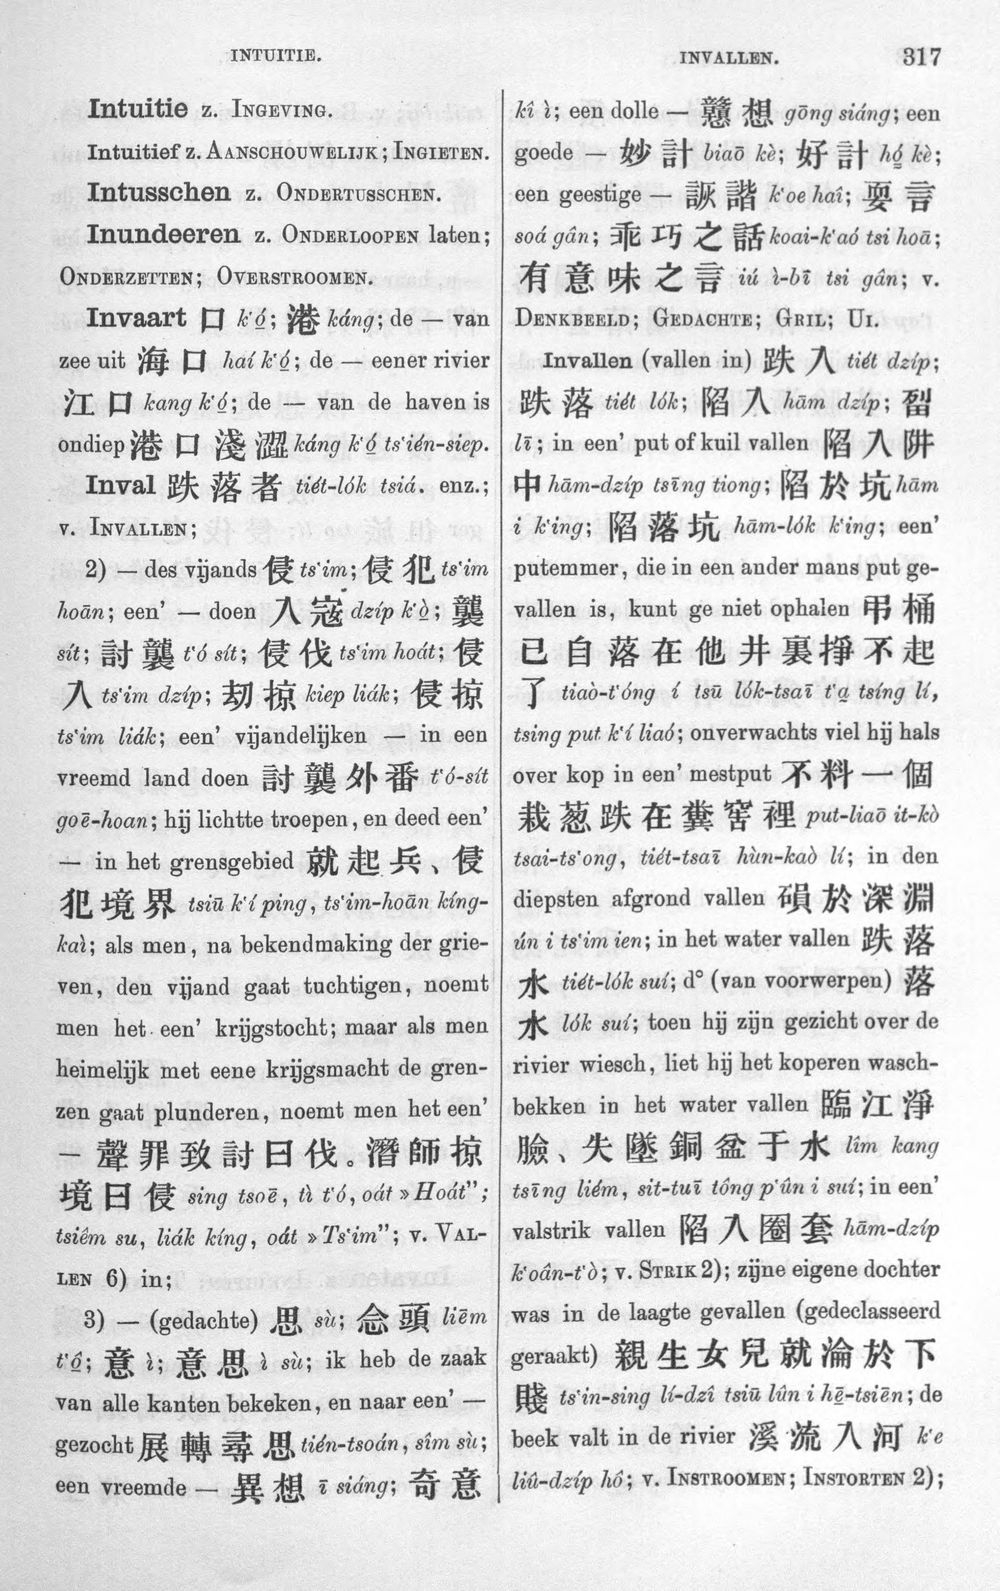 INTUITIE.
INVALLEN. 317
Intuitie z. INGEVING.
Intuitief z. AANSCHOUWELIJK; INGIETEN.
Intusschen z. ONDERTUSSCHEN.
Inundeeren z. ONDERLOOPEN laten;
ONDERZETTEN; OVERSTROOMEN.
Invaart 口 k'ó̱; 港 káng; de — van
zee uit 海口 haí k'ó̱; de — eener rivier
江口 kang k'ó̱; de — van de haven is
ondiep 港口淺澀 káng k'ó̱ ts'ién-siep.
Inval 跌落者 tiét-lók tsiá. enz.;
v. INVALLEN;
2) — des vijands 侵 ts'im; 侵犯 ts'im
hoān; een' — doen 入寇 dzíp k'ò̱; 襲
sít; 討襲 t'ó sít; 侵伐 ts'im hoát; 侵
入 ts'im dzíp; 刼掠 kiep liák; 侵掠
ts'im liák; een' vijandelijken — in een
vreemd land doen 討襲外番 t'ó-sít
goē-hoan; hij lichtte troepen, en deed een'
— in het grensgebied 就起兵、侵
犯境界 tsiū k'í ping, ts'im-hoān kíng-
kaì; als men, na bekendmaking der grie-
ven, den vijand gaat tuchtigen, noemt
men het een' krijgstocht; maar als men
heimelijk met eene krijgsmacht de gren-
zen gaat plunderen, noemt men het een'
— 聲罪致討曰伐。潛師掠
境曰侵 sing tsoē, tì t'ó, oát »Hoát";
tsiêm su, liák kíng, oát »Ts'im"; v. VAL-
LEN 6) in;
3) — (gedachte) 思 sù; 念頭 liēm
t'ô̱; 意 ì; 意思 ì sù; ik heb de zaak
van alle kanten bekeken, en naar een' —
gezocht 展轉尋思 tién-tsoán, sîm sù;
een vreemde — 異想 ī siáng; 奇意
kî ì; een dolle — 戇想 gōng siáng; een
goede — 妙計 biaō kè; 好計 hó̱ kè;
een geestige — 詼諧 k'oe haî; 耍言
soá gân; 乖巧之話 koai-k'aó tsi hoā;
有意味之言 iú ì-bī tsi gân; v.
DENKBEELD; GEDACHTE; GRIL; UI.
Invallen (vallen in) 跌入 tiét dzíp;
跌落 tiét lók; 陷入 hām dzíp;
lī; in een' put of kuil vallen 陷入阱
中 hām-dzíp tsīng tiong; 陷於坑 hām
i k'ing; 陷落坑 hām-lók k'ing; een'
putemmer, die in een ander mans put ge-
vallen is, kunt ge niet ophalen 弔桶
已自落在他井裏掙不起
了 tiaò-t'óng í tsū lók-tsaī t'a̱ tsíng lí,
tsing put k'í liaó; onverwachts viel hij hals
over kop in een' mestput 不料一個
栽葱跌在糞窖裡 put-liaō it-kò
tsai-ts'ong, tiét-tsaī hùn-kaò lí; in den
diepsten afgrond vallen 磒於深淵
ún i ts'im ien; in het water vallen 跌落
水 tiét-lók suí; d° (van voorwerpen) 落
水 lók suí; toen hij zijn gezicht over de
rivier wiesch, liet hij het koperen wasch-
bekken in het water vallen 臨江淨
臉、失墜銅盆于水 lîm kang
tsīng liém, sit-tuī tông p'ûn i suí; in een'
valstrik vallen 陷入圈套 hām-dzíp
k'oân-t'ò; v. STRIK 2); zijne eigene dochter
was in de laagte gevallen (gedeclasseerd
geraakt) 親生女兒就淪於下
賤 ts'in-sing lí-dzî tsiū lûn i hē̱-tsiēn; de
beek valt in de rivier 溪流入河 k'e
liû-dzíp hô; v. INSTROOMEN; INSTORTEN 2);